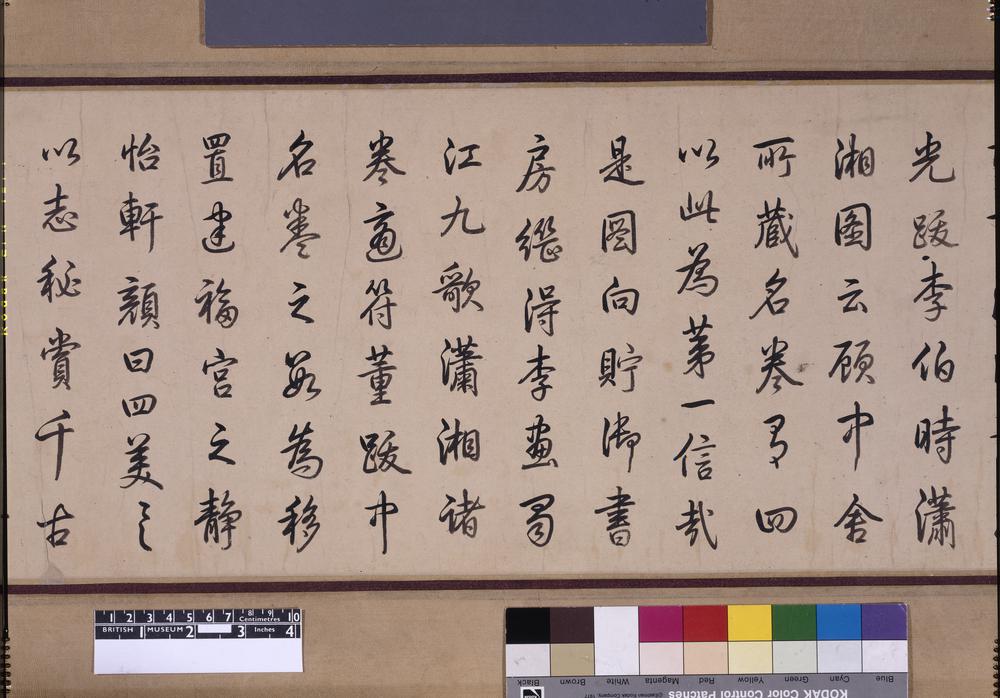 光跋李伯時瀟
湘圖云顧中舍
所蔵名卷有四
以此為第一信哉
是圖向貯御書
房繼得李畫蜀
江九歌瀟湘諸
卷適符董跋中
名卷之數為移
置建福宮之静
怡軒顔曰四美之
以志秘賞千古
1 2 3 4 5 6 7 8 9 10
Centimetres
BRITISH 1 MUSEUM 2 3 Inches 4
Blue Cyan Green Yellow Red Magenta White Brown Black
KODAK Color Control Patches